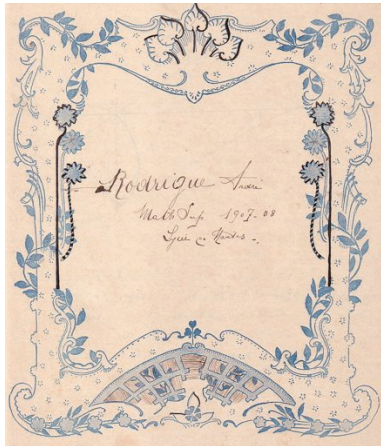 Rodrigue André
Math Sup 1907-08
Lycée de Nantes.